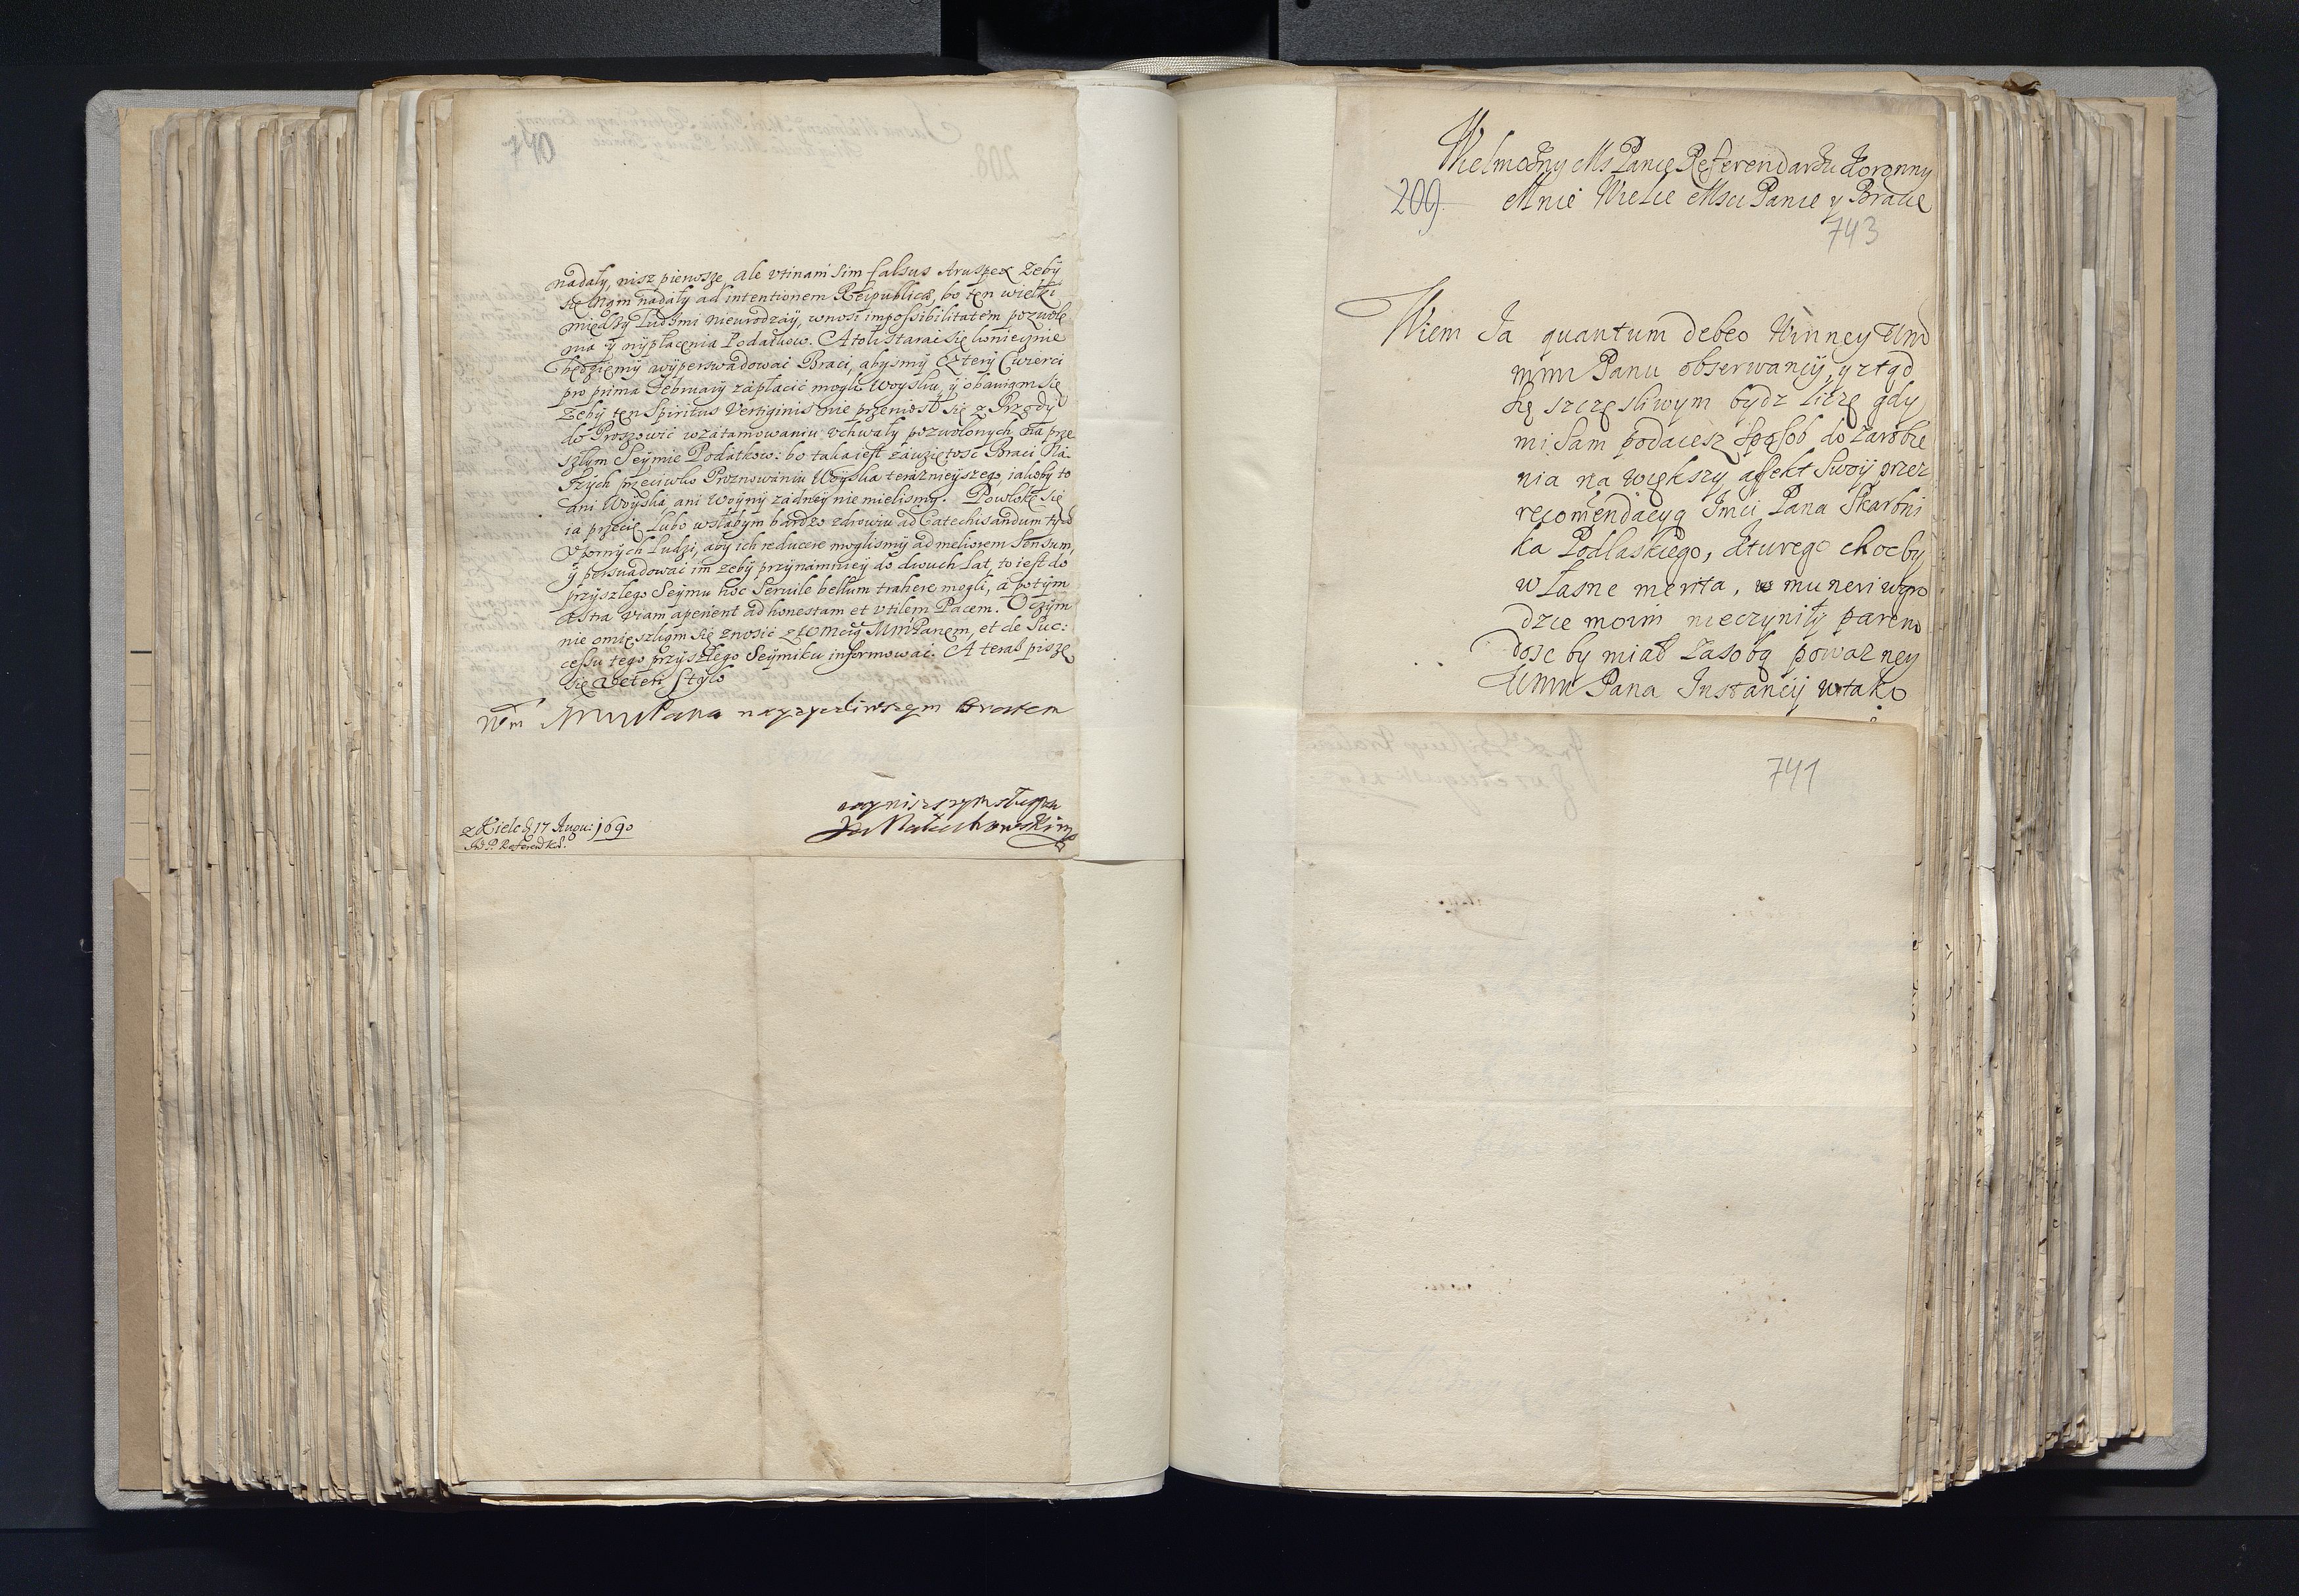 nadały, nisz pierwsze, ale vtinam sim falsus Aruspex Zeby
się Nam nadały ad intentionem Reipublicæ, bo ten wielki
między Ludźmi nieurodzaÿ, wnosi impossibilitatem pozwole
nia ÿ wÿpłacenia Podatkow. Atoli Starać się koniecznie
będziemÿ wÿperswadować Braci, abysmÿ Czterÿ Cwierci
pro prima Februarÿ zapłacić mogli Woysku, ÿ obawiam się
Zebÿ ten Spiritus Vertiginis nie przeniosł się z Przodÿ
do Proszowic wzatamowaniu vchwały pozwolonych na prze
szłym Seÿmie Podatkow: bo taka iest zawziętosc Braci Na-
szych przeciwko Proznowaniu Woyska teraznieyszego, iakoby to
ani Woyska, ani Woyny zadneÿ nie mielismy. Powlokę się
ia przecię Lubo wsłabym bardzo zdrowiu ad Catechisandum tych
Vpornÿch Ludzi, aby ich reducere moglismÿ ad meliorem Sensum,
ÿ persuadować im zebÿ przynamnieÿ do dwuch Lat, to iest do
przyszłego Seymu hoc Servile bellum trahere mogli, a potÿm
Astra viam aperient ad honestam et vtilem Pacem. O czÿm
nie omieszkam się znosić z WMcią MMPanem, et de Suc:
cessu tego przyszłego Seÿmiku informować. A teraz piszę
się veteri Stylo
WM MMPana nayzyczliwszym Bratem
naynizszym sługą
z Kielc d 17 Augu: 1690
JmP. Referend Kor.
Wielmożny Ms Panie Referendarzu Koronny
209. Mnie Wielce Msci Panie y Bracie
743
Wiem Ia quantum debeo Winney
mm Panu obserwancÿ, y ztąd
się szczęsliwym bydz liczę gdy
mi Sam podaiesz sposob do zarobie
nia na większy affekt Swoÿ przez
recomendacyą Imci Pana Skarbni
ka Podlaskiego, kturego choc by
własne merita, muneri wgro
dzie moim nieczyniły parem
dosc by miał zasobą powazney
Pana Instancÿ wtako
741